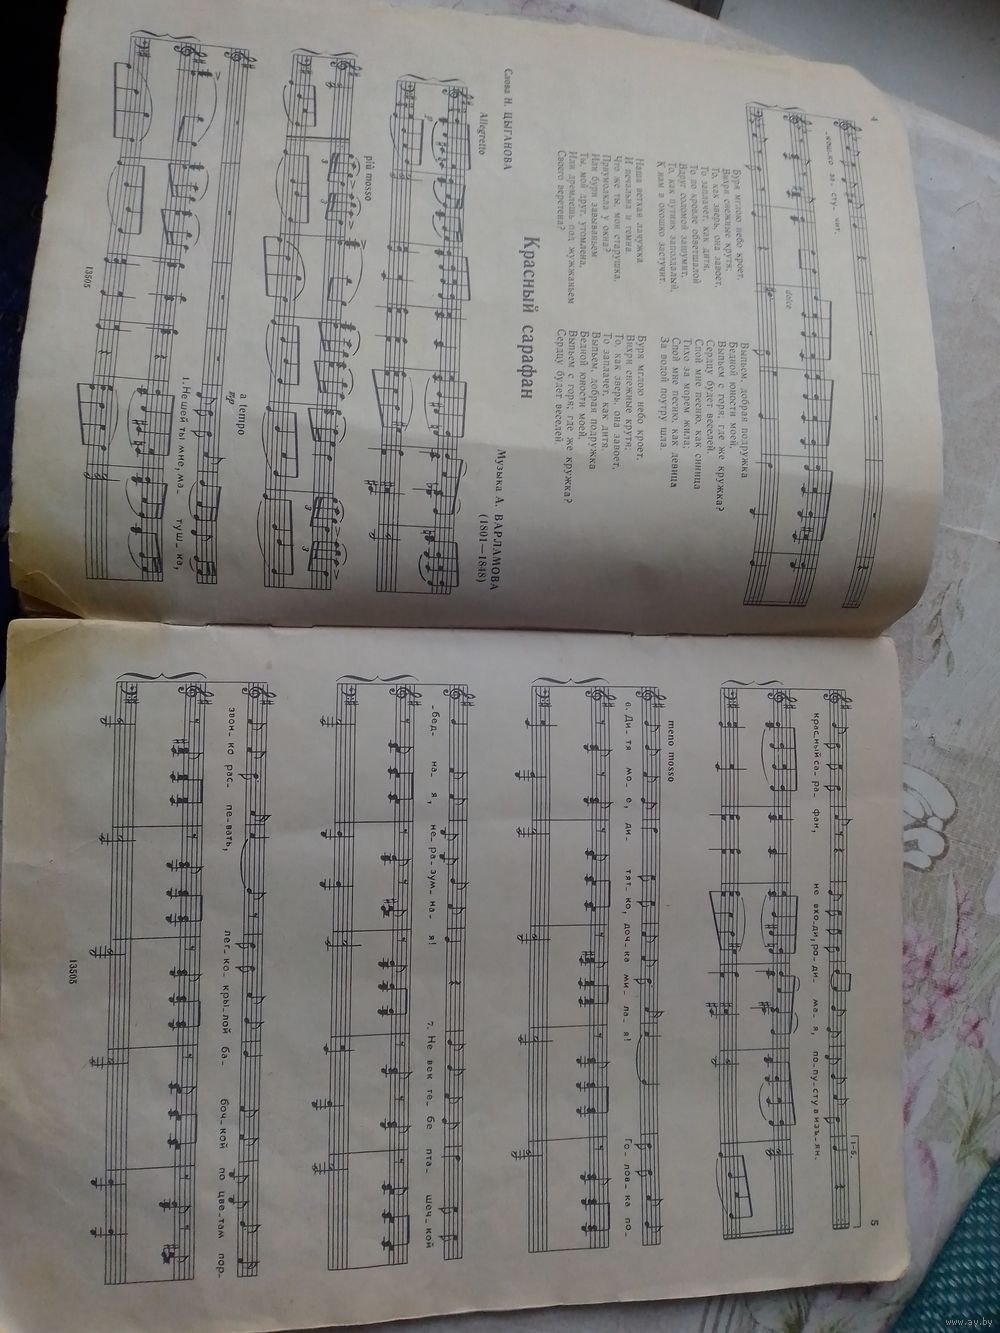 4
-кошко за- сту- чит.
dolce
Буря мглою небо кроет,
Вихри снежные крутя;
То, как зверь, она завоет,
То заплачет, как дитя,
То по кровле обветшалой
Вдруг соломой зашумит,
То, как путник запоздалый,
К нам в окошко застучит.
Наша ветхая лачужка
И печальна и темна.
Что же ты, моя старушка,
Приумолкла у окна?
Или бури завываньем
Ты, мой друг, утомлена,
Или дремлешь под жужжаньем
Своего веретена?
Выпьем, добрая подружка
Бедной юности моей,
Выпьем с горя; где же кружка?
Сердцу будет веселей.
Спой мне песню, как синица
Тихо за морем жила;
Спой мне песню, как девица
За водой поутру шла.
Буря мглою небо кроет,
Вихри снежные крутя;
То, как зверь, она завоет,
То заплачет, как дитя.
Выпьем, добрая подружка
Бедной юности моей,
Выпьем с горя; где же кружка?
Сердцу будет веселей.
Красный сарафан
Слова Н. ЦЫГАНОВА
Музыка А. ВАРЛАМОВА
(1801—1848)
Allegretto
p
più mosso
3
3
3
3
a tempo
1. Не шей ты мне, ма- туш- ка,
13505
5
1-5.
красный са- ра- фан, не вхо-ди, ро- ди- ма- я, по-пу-сту в изъ-ян.
meno mosso
6. Ди- тя мо- е, ди- тят- ко, доч- ка ми- ла- я! Го- лов- ка по-
-бед- на- я, не- ра- зум- на- я! 7. Не век те- бе пта- шеч- кой
звон- ко рас- пе-вать, лег- ко- кры- лой ба- боч- кой по цве- там пор-
13505
www.ay.by